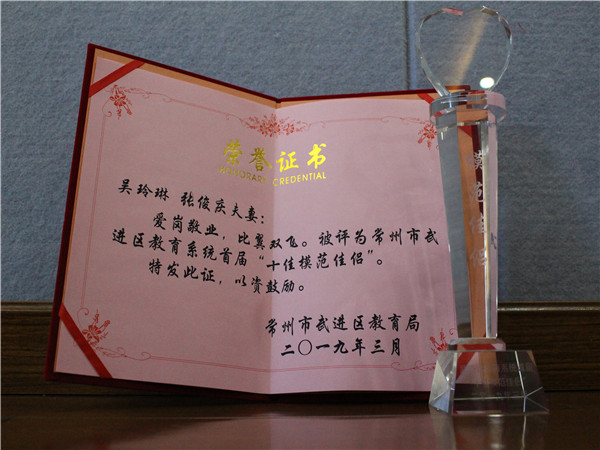 荣誉证书
HONORARY CREDENTIAL
吴玲琳 张俊庆夫妻：
爱岗敬业，比翼双飞。被评为常州市武
进区教育系统首届“十佳模范佳侣”。
特发此证，以资鼓励。
常州市武进区教育局
二〇一九年三月